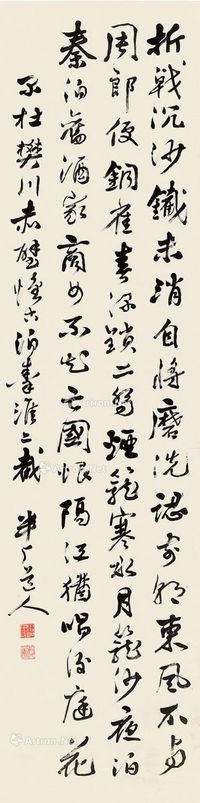 折戟沉沙鐵未消自將磨洗認前朝東風不与
周郎便銅雀春深鎖二喬煙籠寒水月籠沙夜泊
秦淮近酒家商女不知亡國恨隔江猶唱後庭花
杜樊川赤壁懷古泊秦淮二截
半丁道人